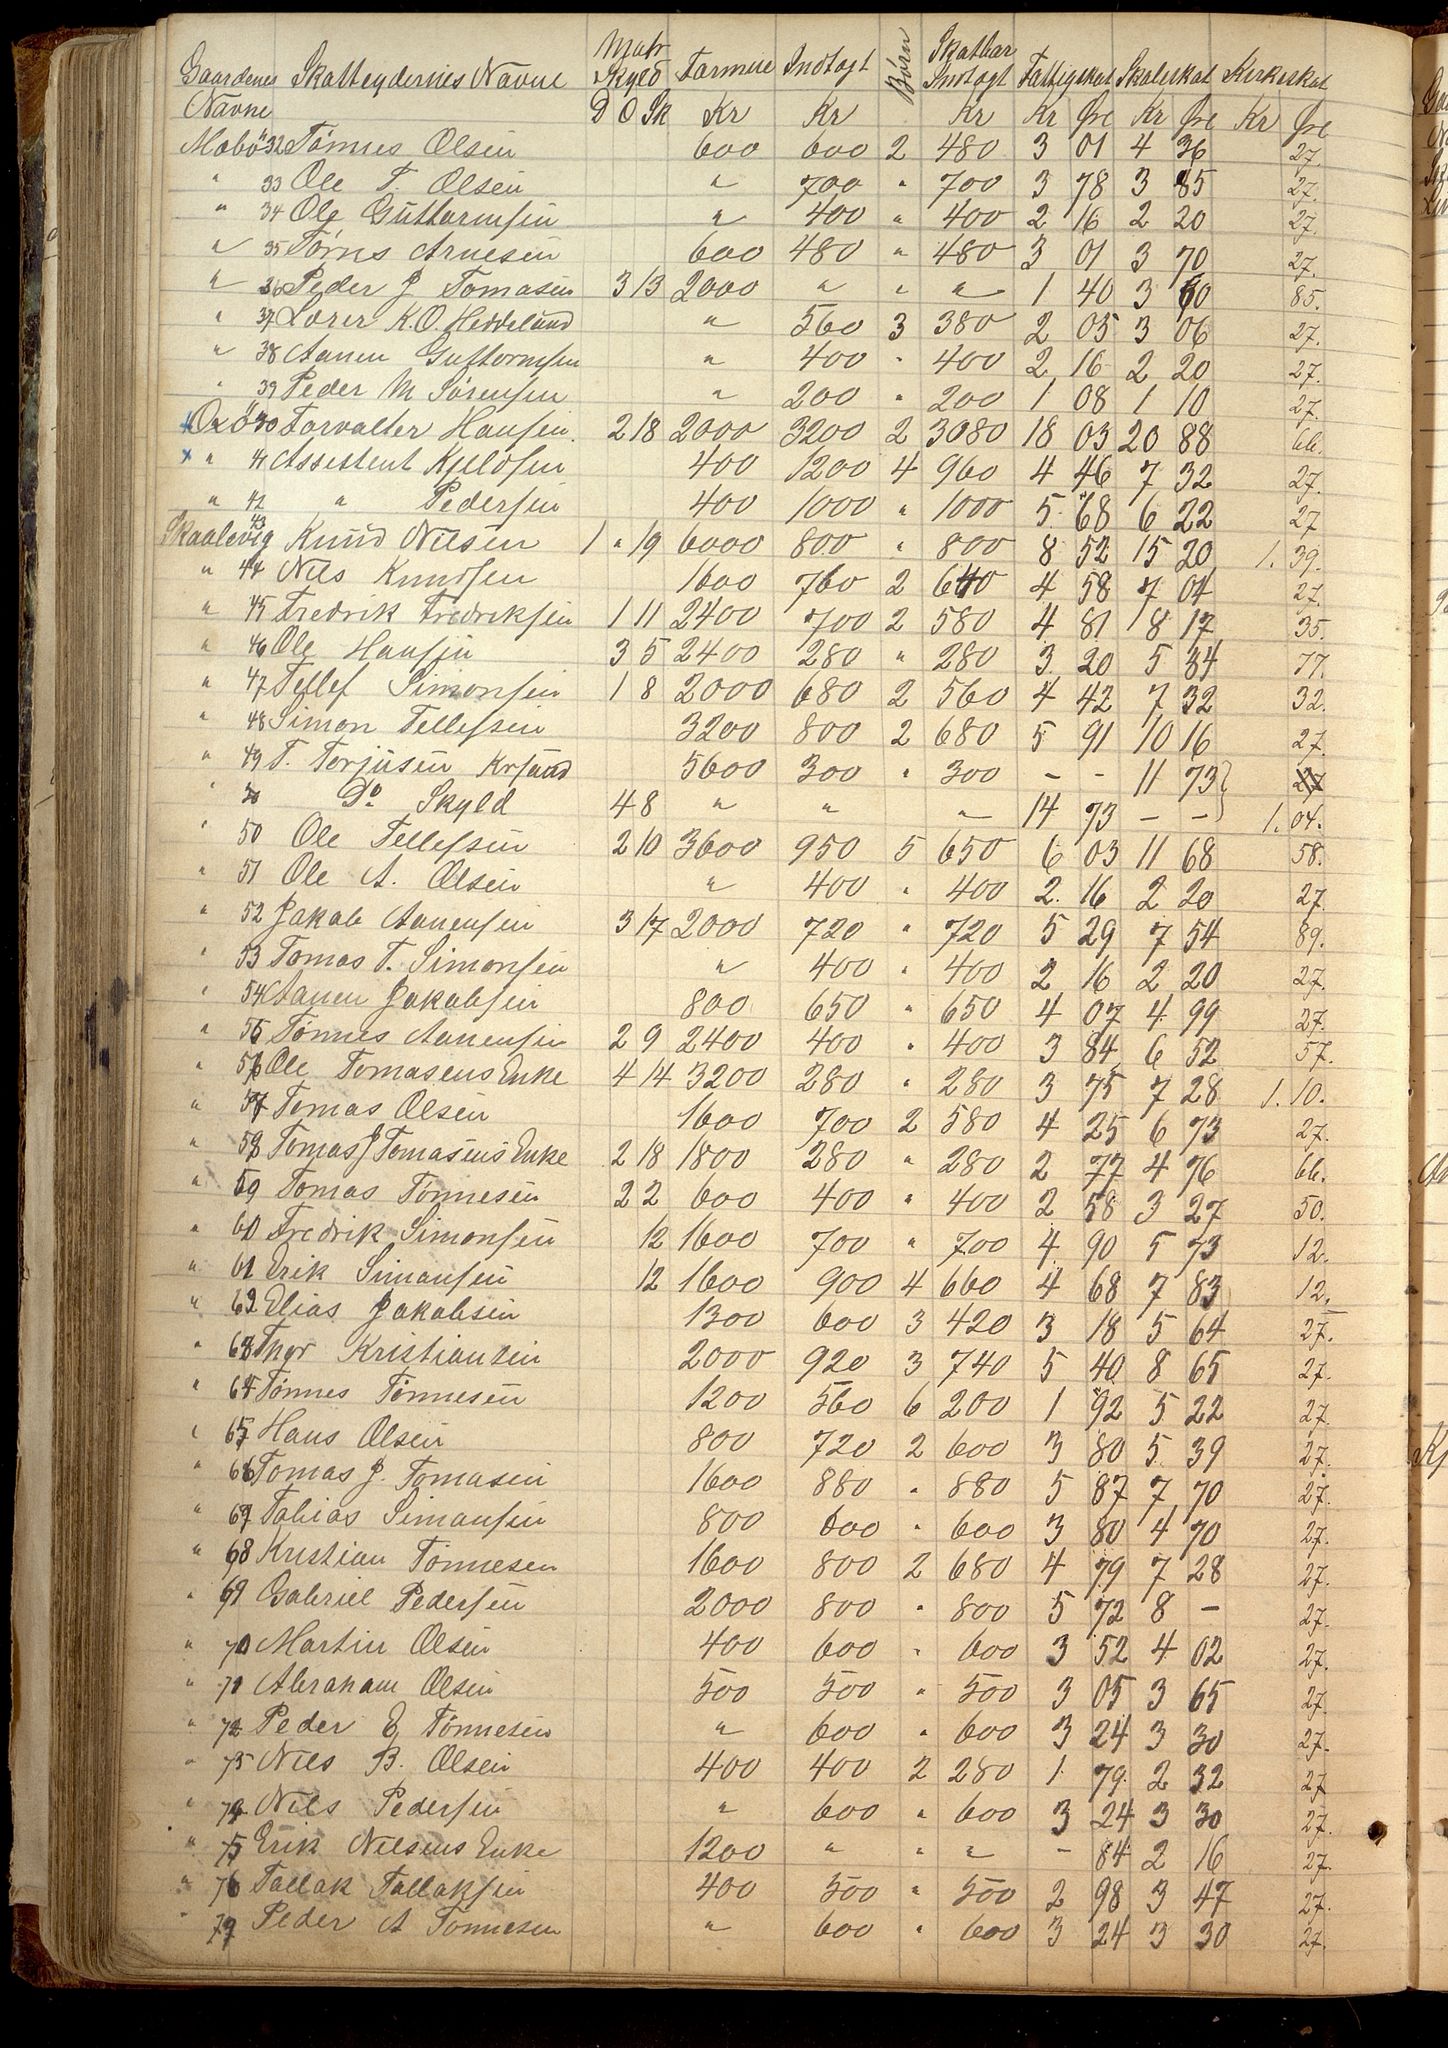 Gaardenes Skatteydernes Navne Matr Skyld Formue Indtægt Børn Skatbar Indtægt Fattigskat Skoleskat Kirkeskat
Navne D O Sk Kr Kr Kr Kr Øre Kr Øre Kr Øre
Mobø 32 Tønnes Olsen 600 600 2 480 3 01 4 36 27.
" 33 Ole T. Olsen " 700 " 700 3 78 3 85 27.
" 34 Ole Guttormsen " 400 " 400 2 16 2 20 27.
" 35 Tørris Arnesen 600 480 " 480 3 01 3 70 27.
" 36 Peder J Tomasen 3 13 2000 " " " 1 40 3 60 85.
" 37 Lærer K.O. Heddeland " 560 3 380 2 05 3 06 27.
" 38 Aanen Guttormsen " 400 " 400 2 16 2 20 27.
" 39 Peder M Sørensen " 200 " 200 1 08 1 10 27.
x Oxø 40 Forvalter Hansen. 2 18 2000 3200 2 3080 18 03 20 88 66.
x " 41 Assistent Kjeldsen 400 1200 4 960 4 46 7 32 27.
" 42 " Pedersen 400 1000 " 1000 5 68 6 22 27
Skaalevig 43 Knud Nilsen 1 " 19 6000 800 " 800 8 52 15 20 1. 39.
" 44 Nils Knudsen 1600 760 2 640 4 58 7 04 27.
" 45 Fredrik Fredriksen 1 11 2400 700 2 580 4 81 8 17 35.
" 46 Ole Hansen 3 5 2400 280 " 280 3 20 5 84 77.
" 47 Tellef Simonsen 1 8 2000 680 2 560 4 42 7 32 32.
" 48 Simon Tellefsen 3200 800 2 680 5 91 10 16 27.
" 49 T. Torjusen Krsand 5600 300 " 300 - - 11 73 27
" Do Skyld 4 8 " " " 14 73 - - 1. 04.
" 50 Ole Tellefsen 2 10 3600 950 5 650 6 03 11 68 58.
" 51 Ole A. Olsen " 400 " 400 2. 16 2 20 27.
" 52 Jakob Aanensen 3 17 2000 720 " 720 5 29 7 54 89.
" 53 Tomas T. Simonsen " 400 " 400 2 16 2 20 27.
" 54 Aanen Jakobsen 800 650 " 650 4 07 4 99 27.
" 55 Tønnes Aanensen 2 9 2400 400 " 400 3 84 6 52 57.
" 56 Ole Tomasens Enke 4 14 3200 280 " 280 3 75 7 28 1. 10.
" 57 Tomas Olsen 1600 700 2 580 4 25 6 73 27.
" 58 Tomas J Tomasens Enke 2 18 1800 280 " 280 2 77 4 76 66.
" 59 Tomas Tønnesen 2 2 600 400 " 400 2 58 3 27 50.
" 60 Fredrik Simonsen 12 1600 700 " 700 4 90 5 73 12.
" 61 Erik Simonsen 12 1600 900 4 660 4 68 7 83 12.
" 62 Elias Jakobsen 1300 600 3 420 3 18 5 64 27.
" 63 Thor Kristiansen 2000 920 3 740 5 40 8 65 27.
" 64 Tønnes Tønnesen 1200 560 6 200 1 92 5 22 27.
" 65 Hans Olsen 800 720 2 600 3 80 5 39 27.
" 66 Tomas J. Tomasen 1600 880 " 880 5 87 7 70 27.
" 67 Tobias Simonsen 800 600 " 600 3 80 4 70 27.
" 68 Kristian Tønnesen 1600 800 2 680 4 79 7 28 27.
" 69 Gabriel Pedersen 2000 800 " 800 5 72 8 - 27.
" 70 Martin Olsen 400 600 " 600 3 52 4 02 27.
" 71 Abraham Olsen 500 500 " 500 3 05 3 65 27.
" 72 Peder E Tønnesen " 600 " 600 3 24 3 30 27.
" 73 Nils B. Olsen 400 400 2 280 1 79 2 32 27
" 74 Nils Pedersen " 600 " 600 3 24 3 30 27.
" 75 Erik Nilsens Enke 1200 " " " - 84 2 16 27.
" 76 Tallak Tallaksen 400 500 " 500 2 98 3 47 27.
" 77 Peder A Tønnesen " 600 " 600 3 24 3 30 27.